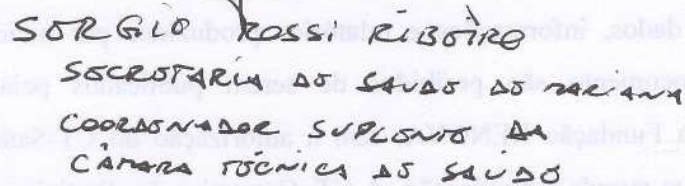 SERGIO ROSSI RIBEIRO
SECRETARIA DE SAUDE DE MARIANA
COORDENADOR SUPLENTE DA
CÂMARA TÉCNICA DE SAUDE